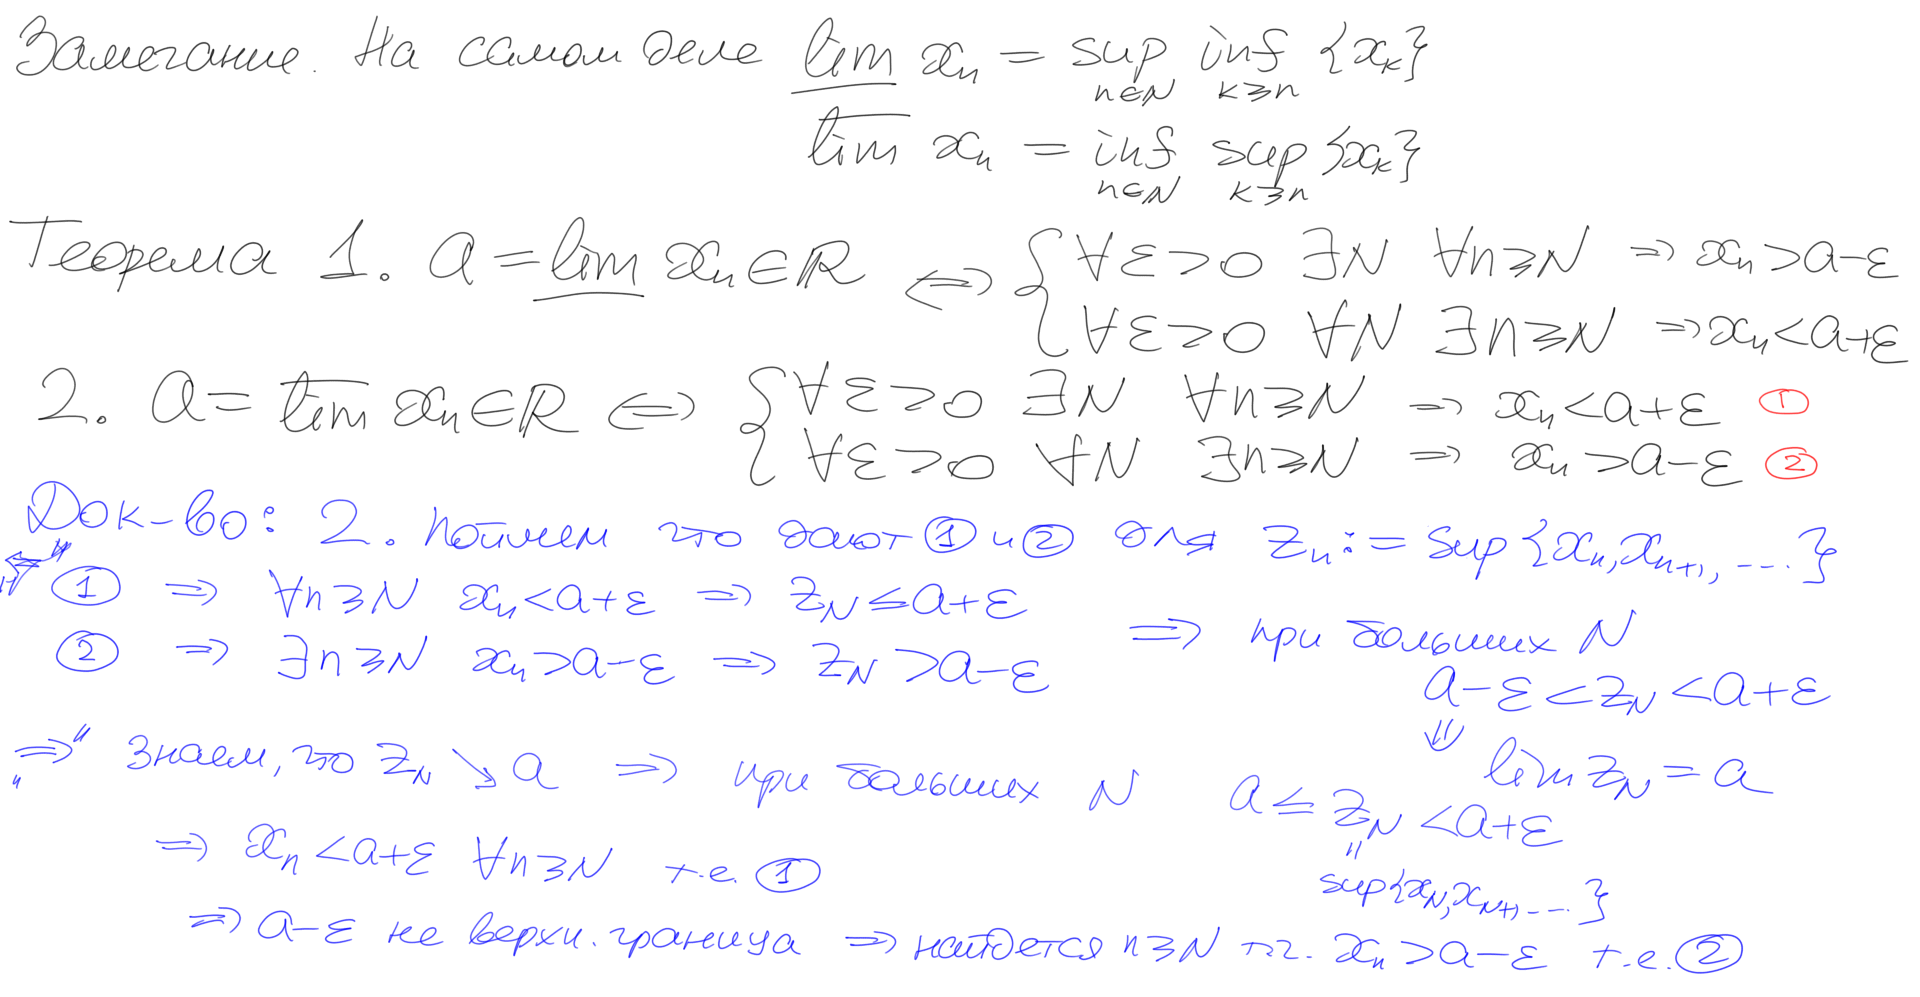 Замечание. На самом деле \underline{lim} xₙ = sup_{n∈ℕ} inf_{k≥n} {xₖ}
\overline{lim} xₙ = inf_{n∈ℕ} sup_{k≥n} {xₖ}
Теорема 1. a = \underline{lim} xₙ ∈ ℝ ⇔ { ∀ε>0 ∃N ∀n≥N ⇒ xₙ > a-ε
∀ε>0 ∀N ∃n≥N ⇒ xₙ < a+ε
2. a = \overline{lim} xₙ ∈ ℝ ⇔ { ∀ε>0 ∃N ∀n≥N ⇒ xₙ < a+ε ①
∀ε>0 ∀N ∃n≥N ⇒ xₙ > a-ε ②
Док-во: 2. Поймем что дают ① и ② для zₙ := sup{xₙ, xₙ₊₁, ...}
"⇐" ① ⇒ ∀n≥N xₙ < a+ε ⇒ z_N ≤ a+ε
② ⇒ ∃n≥N xₙ > a-ε ⇒ z_N > a-ε
⇒ при больших N
a-ε < z_N < a+ε
⇓
lim z_N = a
"⇒" Знаем, что z_N ↘ a ⇒ при больших N a ≤ z_N < a+ε
"
sup{x_N, x_{N+1}, ...}
⇒ xₙ < a+ε ∀n≥N т.е. ①
⇒ a-ε не верхн. граница ⇒ найдется n≥N т.ч. xₙ > a-ε т.е. ②